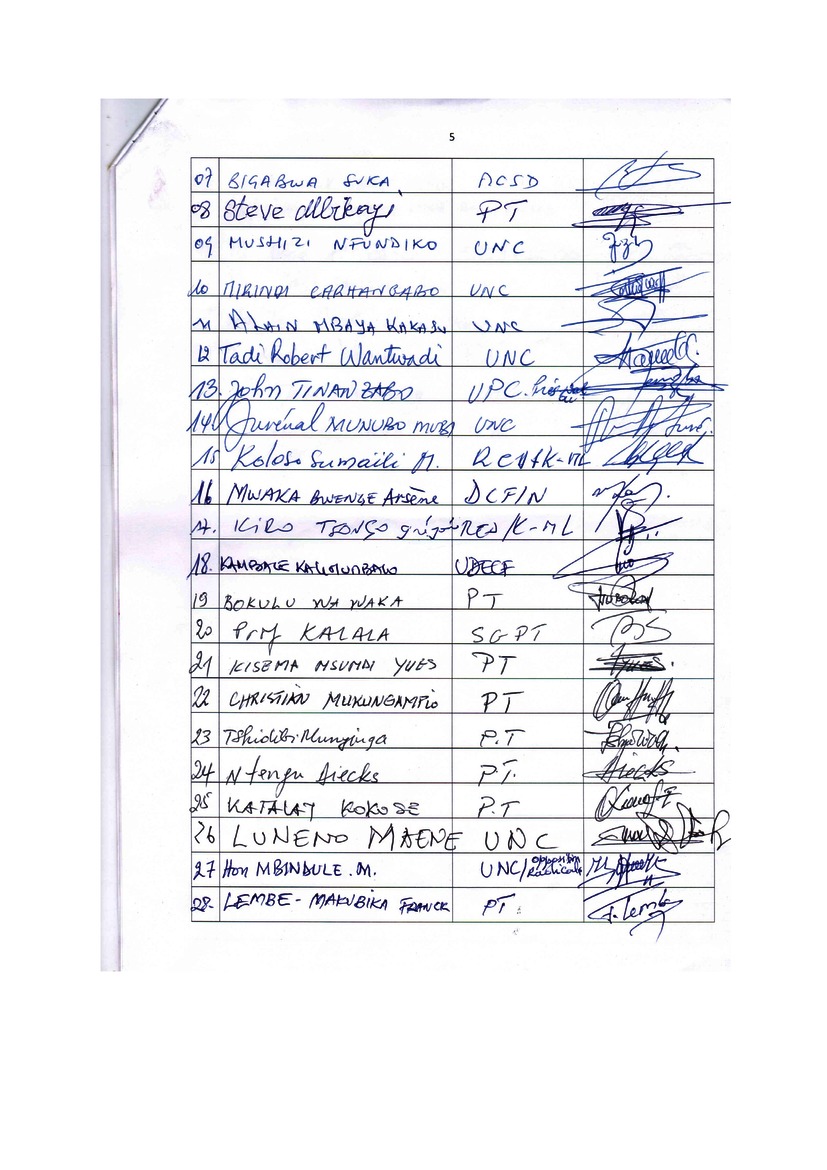 5
07 BIGABWA SUKA ACSD
08 Steve Mbikayi PT
09 MUSHIZI NFUNDIKO UNC
10 MIRINDI CARHANGABO UNC
11 ALAIN MBAYA KAKASU UNC
12 Tadi Robert Wantwadi UNC
13. John TINANZABO UPC.
14 Juvénal MUNUBO MUBI UNC
15 Koloso Sumaili M. RCD/K-ML
16 MWAKA BWENGE Arsène DCFIN
17. KIRO TSONGO RCD/K-ML
18. UDECF
19 BOKULU WA WAKA PT
20 Prof KALALA SGPT
21 KISEMA MSUMDI YVES PT
22 CHRISTIAN MUKUNGAMPIO PT
23 Tshidibi Munginga P.T
24 Ntengu Aiecks PT.
25 KATALAY KOKOSE P.T
26 LUNENO MAENE UNC
27 Hon MBINDULE .M. UNC/Opposition Radicale
28. LEMBE - MAKUBIKA FRANCK PT.
F. Lembe